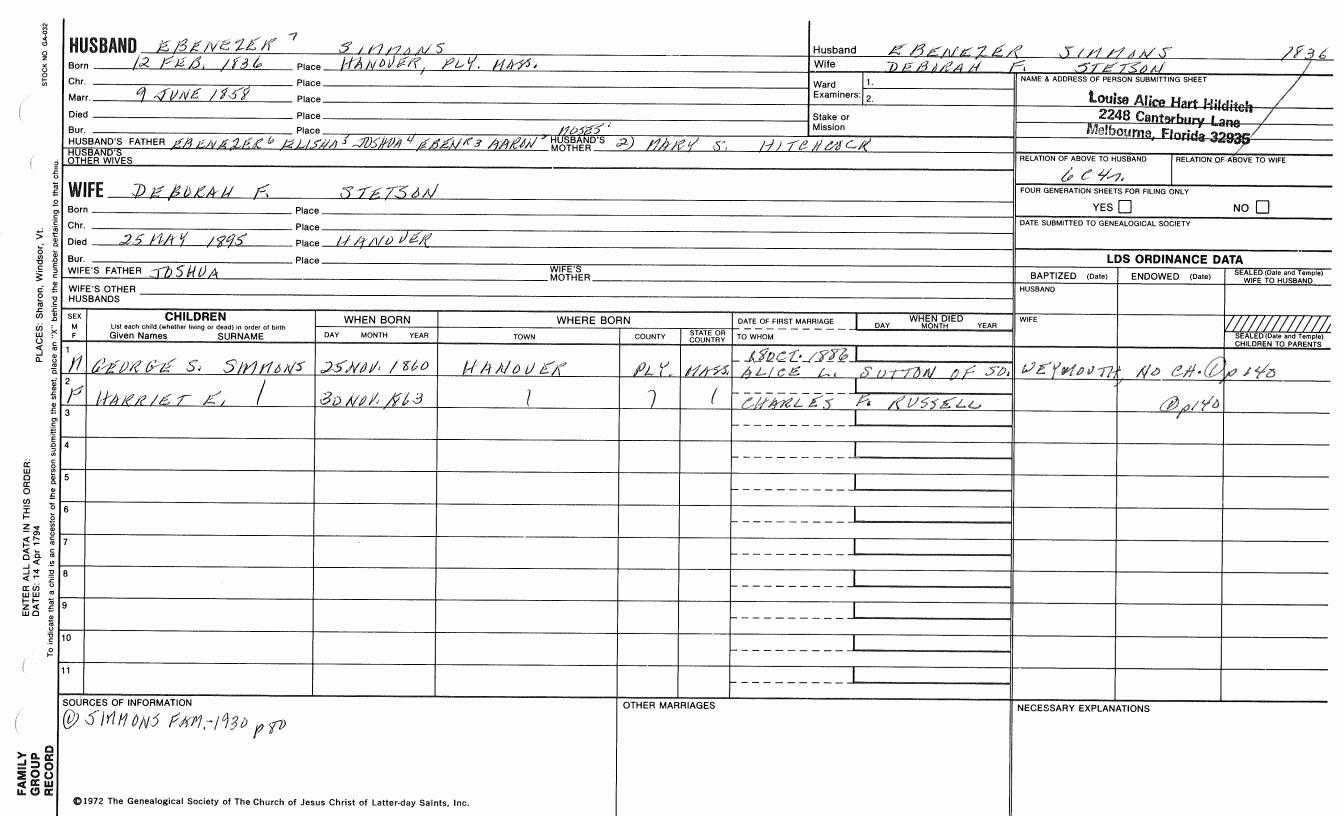 STOCK NO GA-032
HUSBAND EBENEZER 7 SIMMONS
Born 12 FEB. 1836 Place HANOVER, PLY. MASS.
Chr. Place
Marr. 9 JUNE 1858 Place
Died Place
Bur. Place
HUSBAND'S FATHER EBENEZER6 ELISHA5 JOSHUA4 EBENR3 AARON2 MOSES1 HUSBAND'S MOTHER 2) MARY S. HITCHCOCK
HUSBAND'S OTHER WIVES
WIFE DEBORAH F. STETSON
Born Place
Chr. Place
Died 25 MAY 1895 Place HANOVER
Bur. Place
WIFE'S FATHER JOSHUA WIFE'S MOTHER
WIFE'S OTHER HUSBANDS
Husband EBENEZER SIMMONS 1836
Wife DEBORAH F. STETSON
Ward Examiners: 1. 2.
Stake or Mission
NAME & ADDRESS OF PERSON SUBMITTING SHEET
Louise Alice Hart Hilditch
2248 Canterbury Lane
Melbourne, Florida 32935
RELATION OF ABOVE TO HUSBAND RELATION OF ABOVE TO WIFE
6C4r.
FOUR GENERATION SHEETS FOR FILING ONLY
YES NO
DATE SUBMITTED TO GENEALOGICAL SOCIETY
LDS ORDINANCE DATA
BAPTIZED (Date) ENDOWED (Date) SEALED (Date and Temple) WIFE TO HUSBAND
HUSBAND
WIFE
SEALED (Date and Temple) CHILDREN TO PARENTS
SEX M F CHILDREN List each child (whether living or dead) in order of birth Given Names SURNAME
WHEN BORN DAY MONTH YEAR
WHERE BORN TOWN COUNTY STATE OR COUNTRY
DATE OF FIRST MARRIAGE TO WHOM
WHEN DIED DAY MONTH YEAR
1 M GEORGE S. SIMMONS 25 NOV. 1860 HANOVER PLY. MASS. 18 OCT. 1886 ALICE L. SUTTON OF SO. WEYMOUTH, NO CH. ① p140
2 F HARRIET E. 30 NOV. 1863 CHARLES F. RUSSELL ① p140
3
4
5
6
7
8
9
10
11
SOURCES OF INFORMATION
① SIMMONS FAM.-1930 p 80
OTHER MARRIAGES
NECESSARY EXPLANATIONS
©1972 The Genealogical Society of The Church of Jesus Christ of Latter-day Saints, Inc.
FAMILY GROUP RECORD
ENTER ALL DATA IN THIS ORDER:
DATES: 14 Apr 1794
PLACES: Sharon, Windsor, Vt.
To indicate that a child is an ancestor of the person submitting the sheet, place an "X" behind the number pertaining to that child.